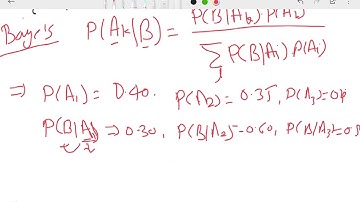 Baye's P(Ak|B) = P(B|Ak) · P(Ak)
∑ P(B|Ai) P(Ai)
⇒ P(A1) = 0.40. P(A2) = 0.35, P(A3) =
P(B|A1) ⇒ 0.30, P(B|A2) = 0.60, P(B|A3) =